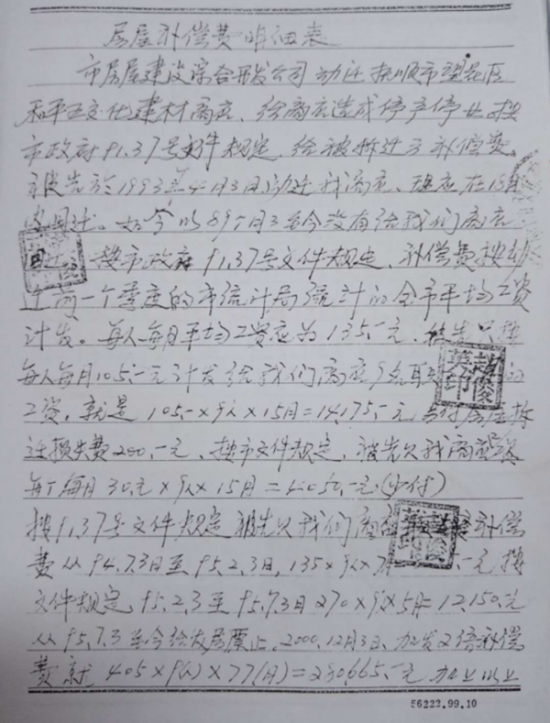 房屋补偿费明细表
市房屋建设综合开发公司动迁抚顺市望花区
和平卫文化建材商店。给商店造成停产停业按
市政府91.37号文件规定给被拆迁方补偿费
被告於1993年4月3日动迁我商店、理应在15月
回迁。如今以89个月至今没有给我们商店
回迁。按市政府91.37号文件规定、补偿费按动
迁前一个季度的市统计局统计的全市平均工资
计发。每人每月平均工资应为135.-元、被告只按
每人每月105.-元计发给我们商店9名职工的
工资,就是105×9人×15月=14175.-元
迁损失费200.-元、按市文件规定、被告欠我商店
每人每月30元×9人×15月=4050.-元(少付)
按91.37号文件规定被告欠我们商店补偿
费从94.7.3日至95.2.3日,135×9人×7月 元按
文件规定95.2.3至95.7.3日270×9人×5月=12,150.元
从95.7.3至今给发房票止.2000.12月3日、加发2倍补偿
费就405×9(人)×77(月)=280665.-元 加上以上
56222.99.10